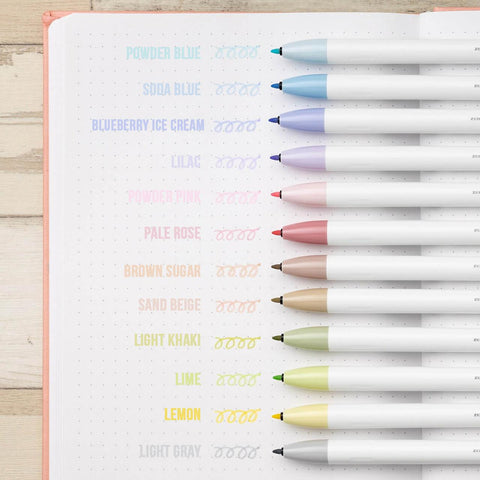 POWDER BLUE
SODA BLUE
BLUEBERRY ICE CREAM
LILAC
POWDER PINK
PALE ROSE
BROWN SUGAR
SAND BEIGE
LIGHT KHAKI
LIME
LEMON
LIGHT GRAY